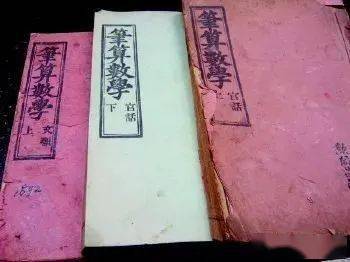 筆算數學
上
文理
1892
筆算數學
下
官話
筆算數學
官話